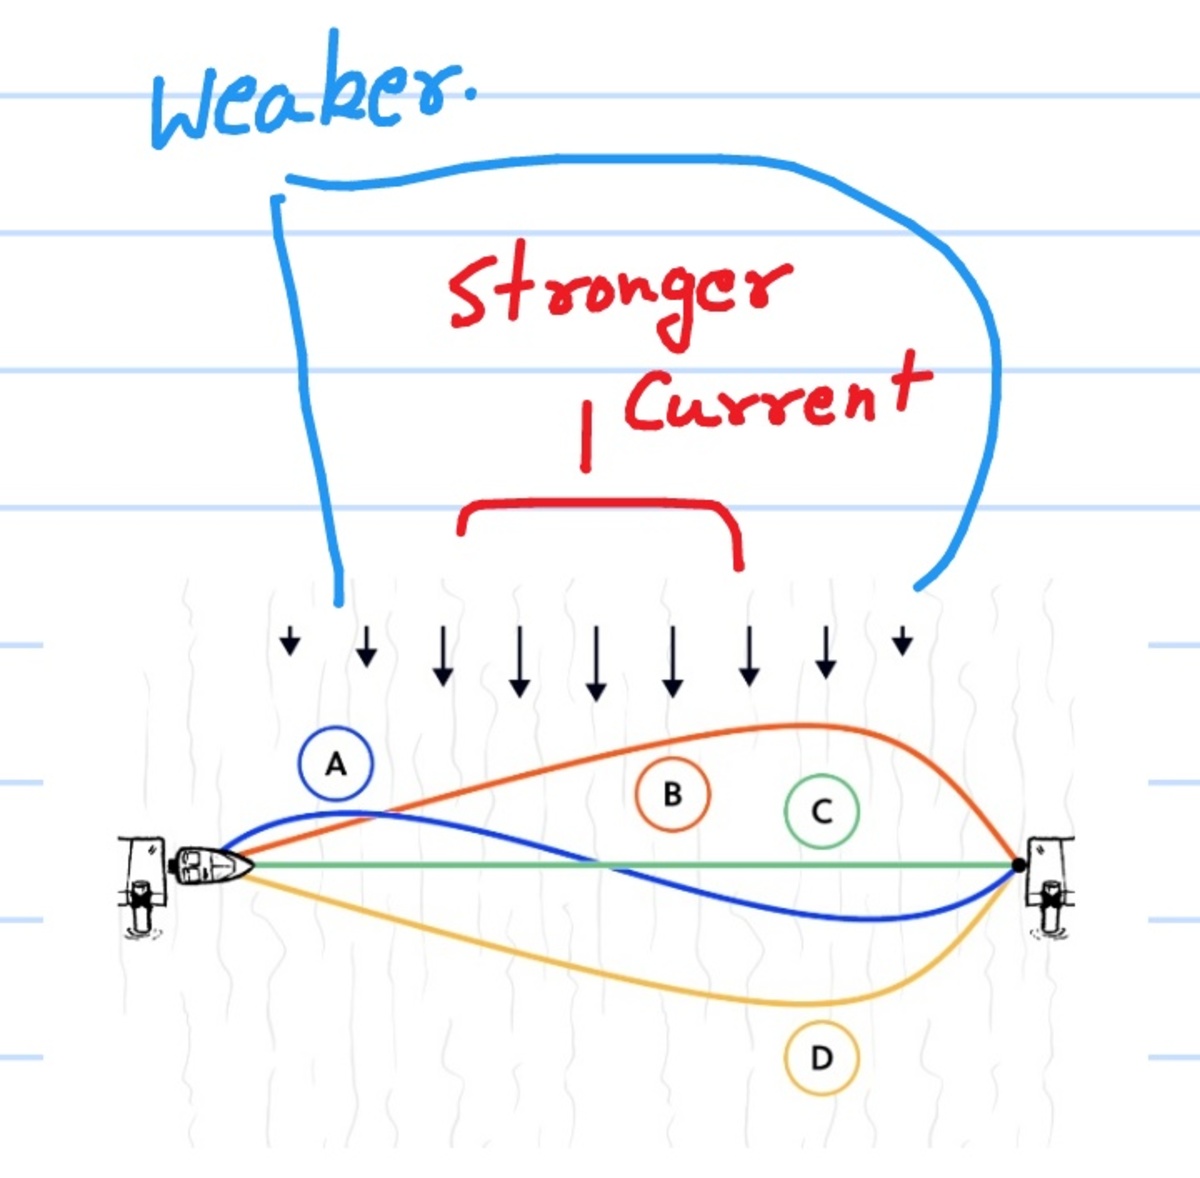 Weaker.
Stronger
Current
A
B
C
D